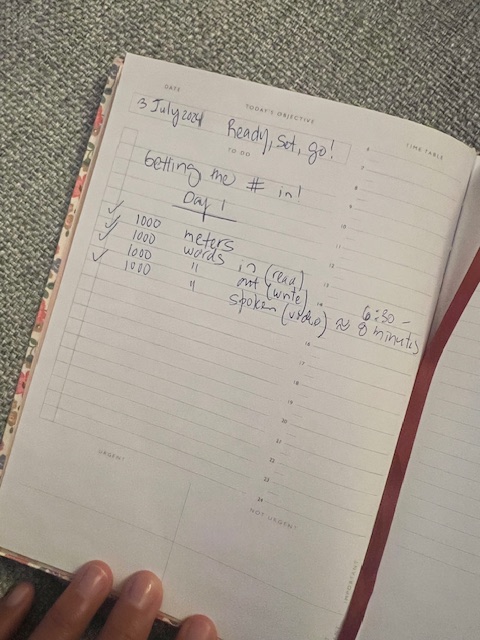 DATE
TODAY'S OBJECTIVE
3 July 2024 Ready, Set, go!
TO DO
TIME TABLE
Getting the # in!
Day 1
✓ 1000 meters
✓ 1000 words in (read)
1000 " out (write)
✓ 1000 " spoken (video) ≈ 6:30 –
8 minutes
6
7
8
9
10
11
12
13
14
16
17
18
19
20
21
22
23
24
URGENT
NOT URGENT
IMPORTANT